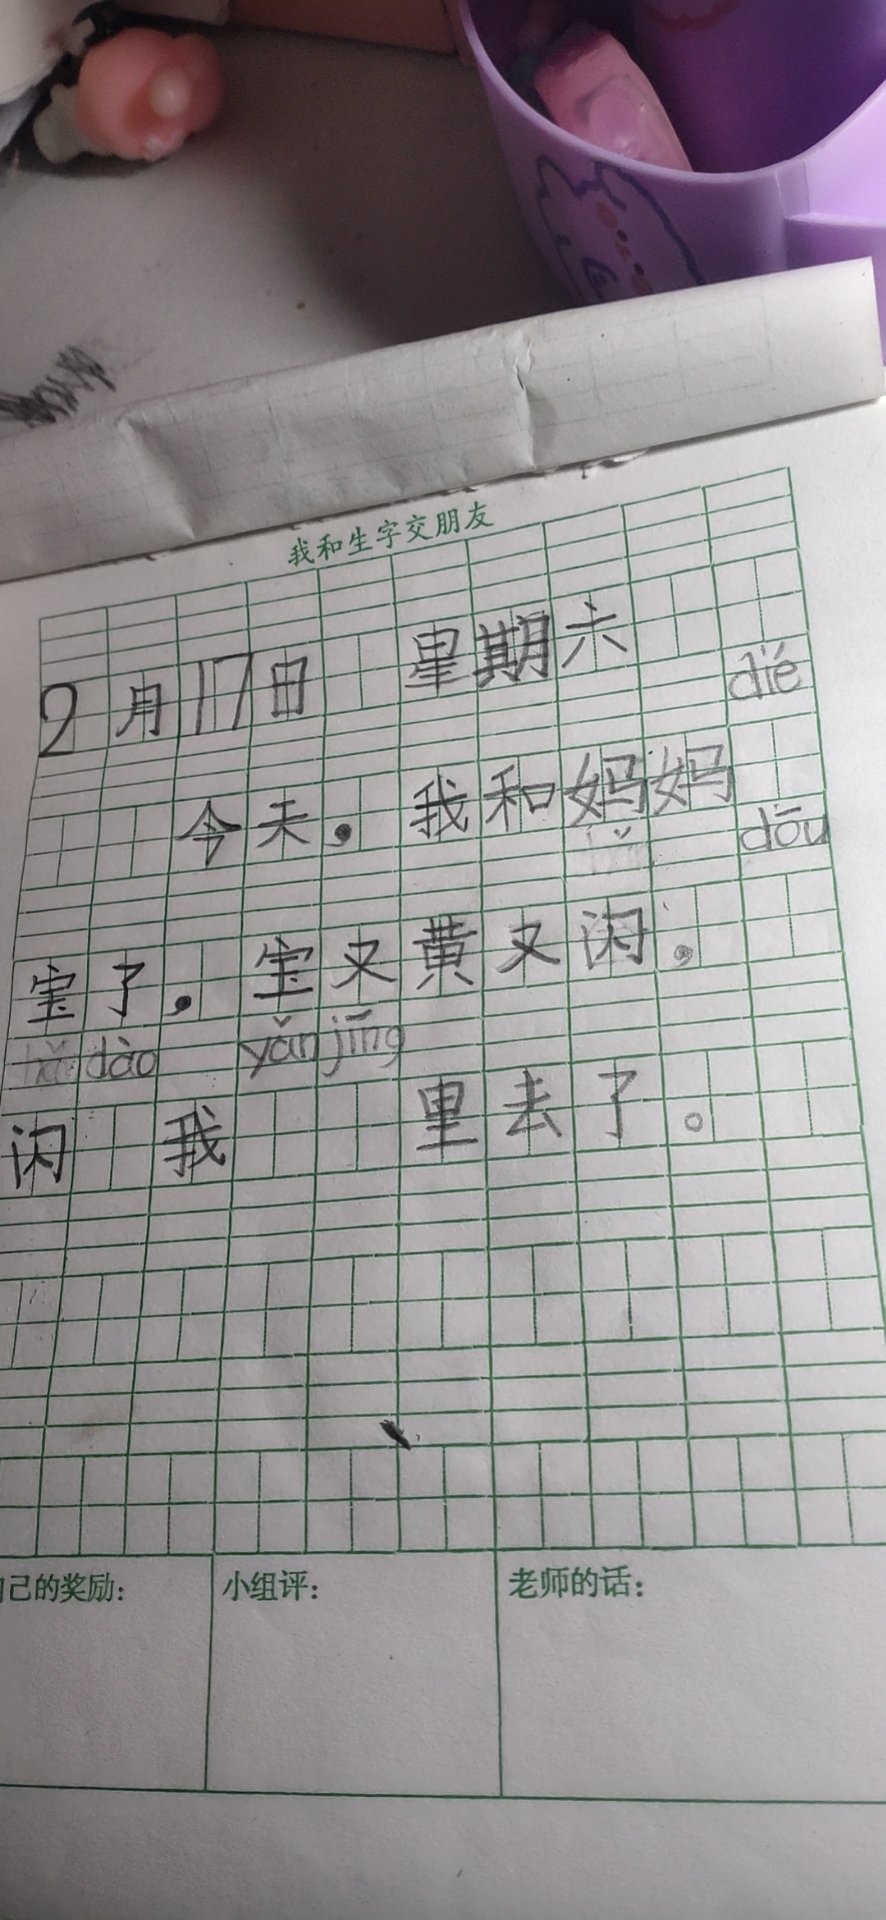 我和生字交朋友
2月17日 星期六
dié
今天，我和妈妈
dōu
宝了，宝又黄又闪，
dào yǎn jīng
闪 我 里去了。
己的奖励： 小组评： 老师的话：